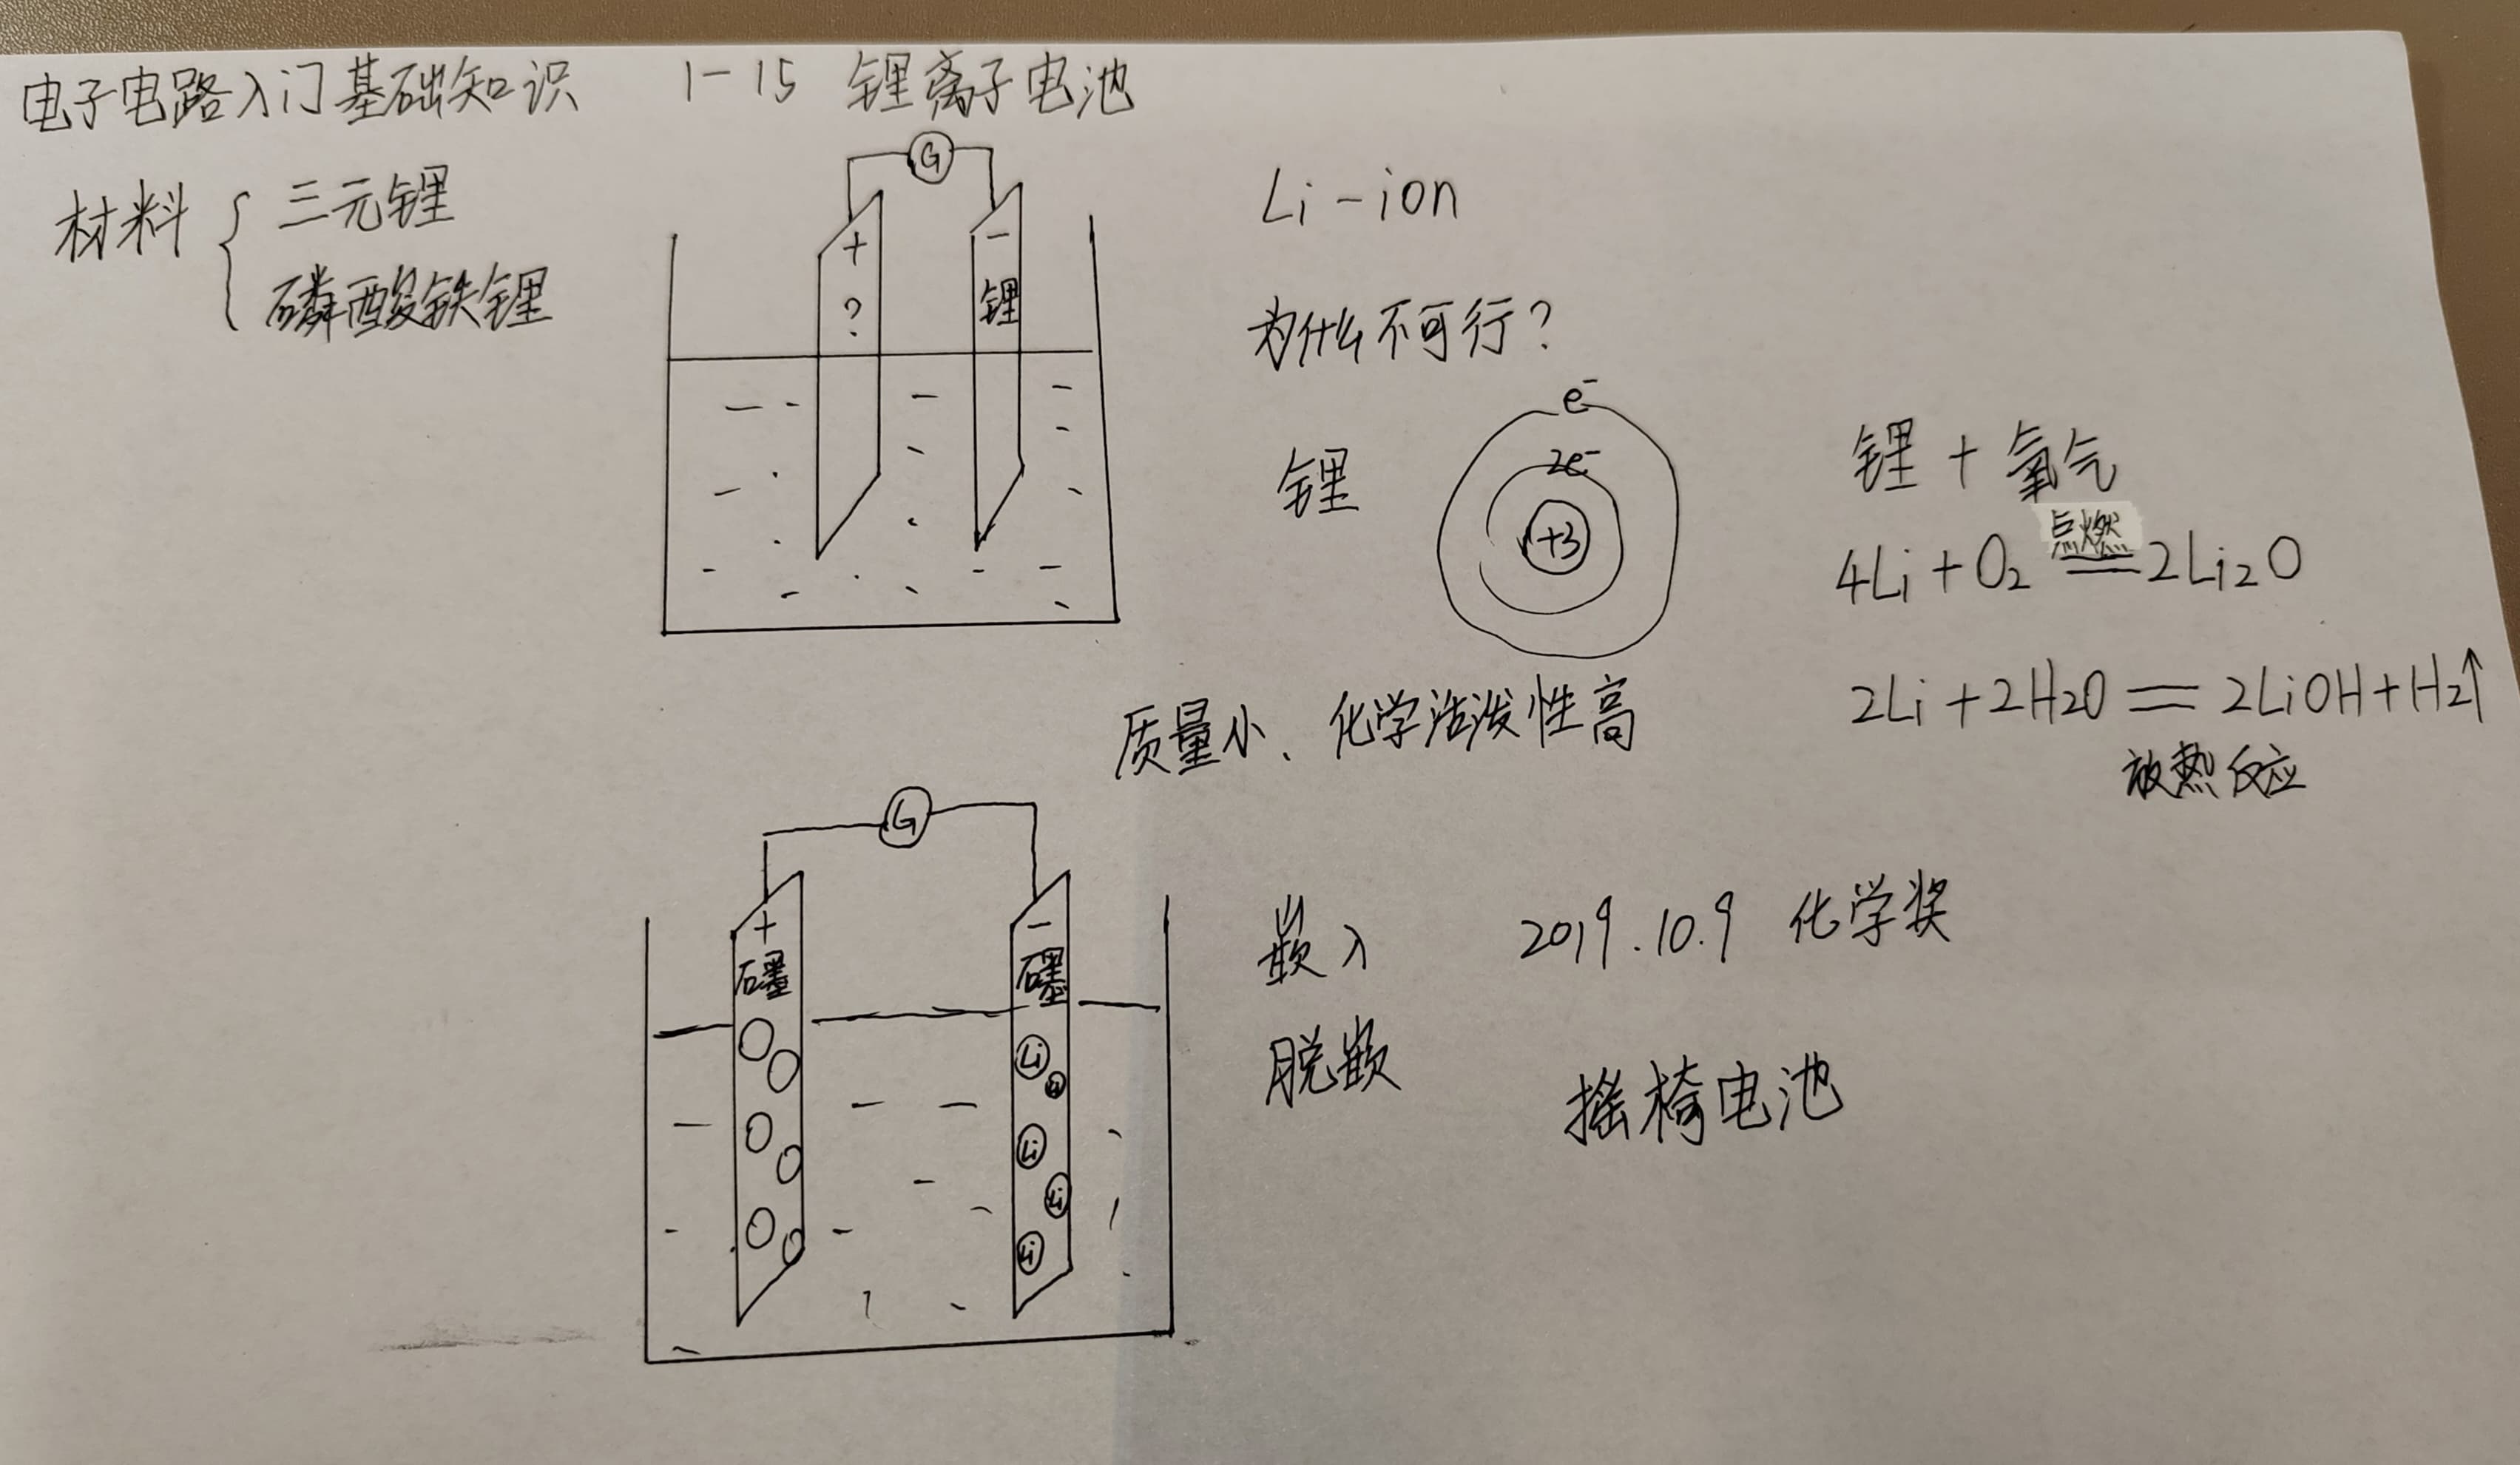 电子电路入门基础知识 1-15 锂离子电池
材料 { 三元锂
磷酸铁锂
G
+
?
-
锂
Li-ion
为什么不可行?
锂
e⁻
2e⁻
+3
锂 + 氧气
点燃
4Li + O₂ == 2Li₂O
2Li + 2H₂O == 2LiOH + H₂↑
放热反应
质量小、化学活泼性高
G
+
石墨
-
石墨
Li
Li
Li
Li
Li
嵌入
脱嵌
2019.10.9 化学奖
摇椅电池